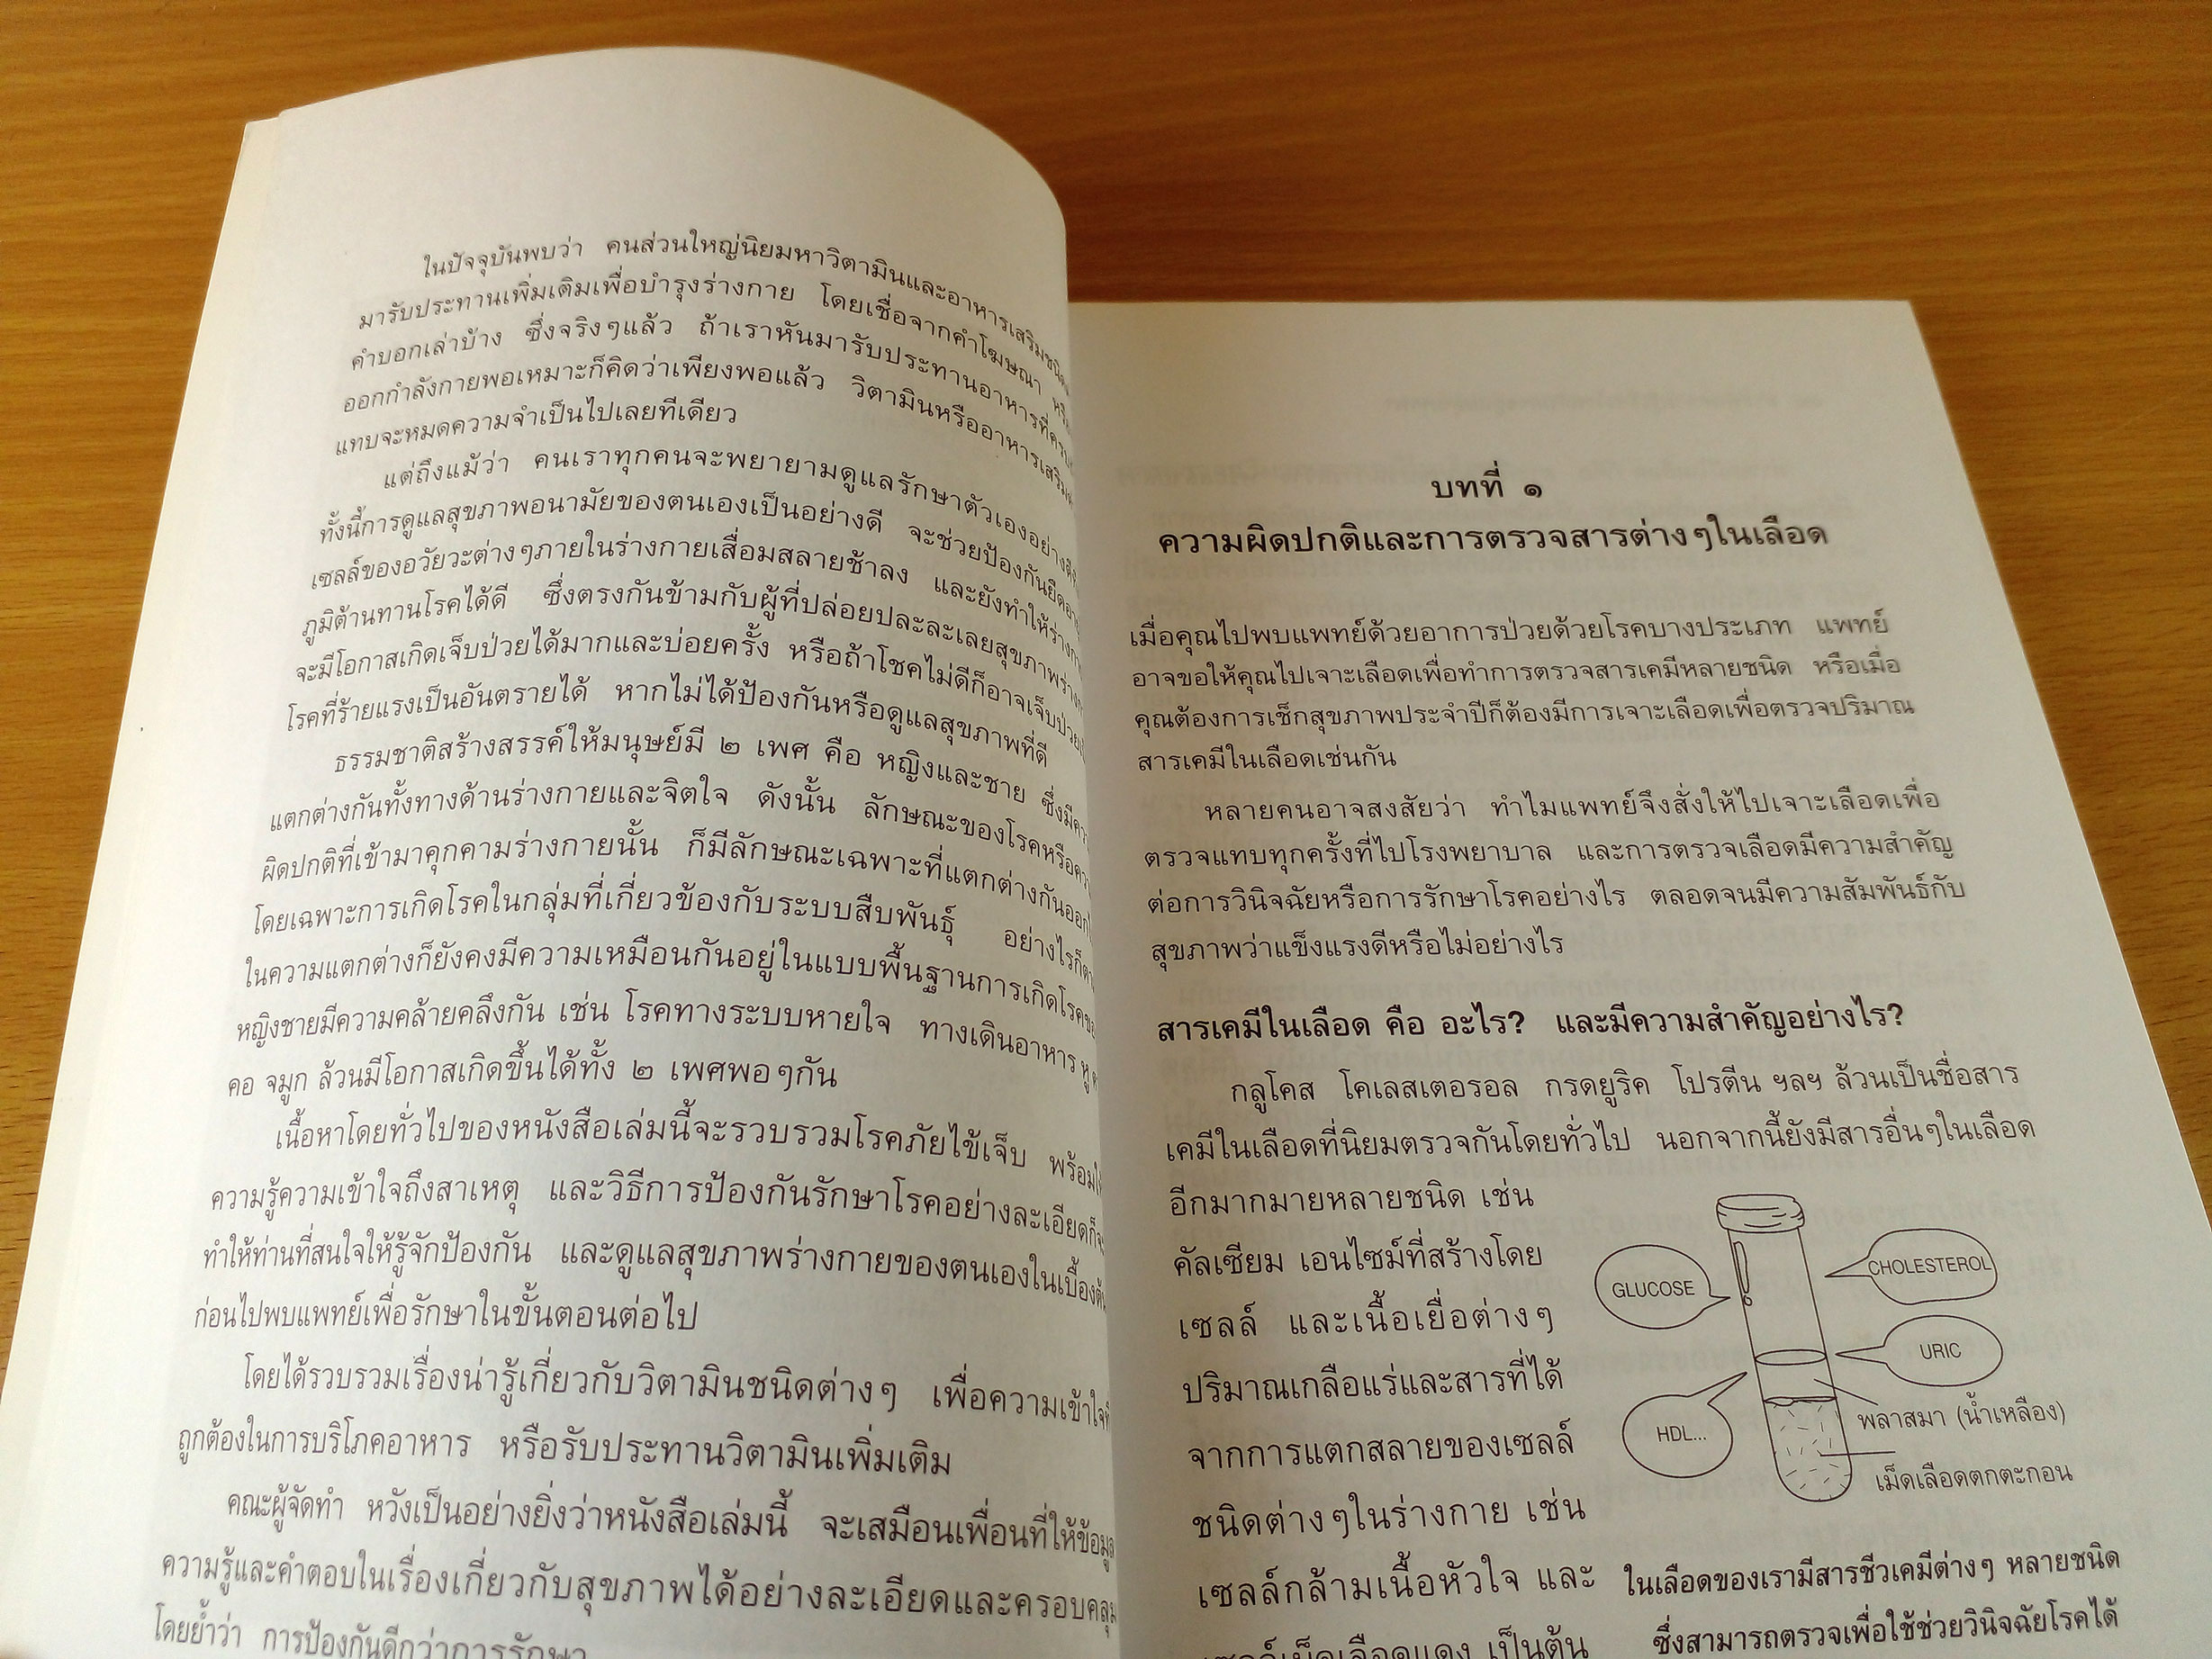 ในปัจจุบันพบว่า คนส่วนใหญ่นิยมหาวิตามินและอาหารเสริมชนิด
มารับประทานเพิ่มเติมเพื่อบำรุงร่างกาย โดยเชื่อจากคำโฆษณา
คำบอกเล่าบ้าง ซึ่งจริงๆแล้ว ถ้าเราหันมารับประทานอาหารที่
ออกกำลังกายพอเหมาะก็คิดว่าเพียงพอแล้ว วิตามินหรืออาหารเสริม
แทบจะหมดความจำเป็นไปเลยทีเดียว
แต่ถึงแม้ว่า คนเราทุกคนจะพยายามดูแลรักษาตัวเองอย่าง
ทั้งนี้การดูแลสุขภาพอนามัยของตนเองเป็นอย่างดี จะช่วยป้องกันยืดอา
เซลล์ของอวัยวะต่างๆภายในร่างกายเสื่อมสลายช้าลง และยังทำให้ร่างกา
ภูมิต้านทานโรคได้ดี ซึ่งตรงกันข้ามกับผู้ที่ปล่อยปละละเลยสุขภาพร่าง
จะมีโอกาสเกิดเจ็บป่วยได้มากและบ่อยครั้ง หรือถ้าโชคไม่ดีก็อาจเจ็บป่วย
โรคที่ร้ายแรงเป็นอันตรายได้ หากไม่ได้ป้องกันหรือดูแลสุขภาพที่ดี
ธรรมชาติสร้างสรรค์ให้มนุษย์มี ๒ เพศ คือ หญิงและชาย ซึ่งมีคว
แตกต่างกันทั้งทางด้านร่างกายและจิตใจ ดังนั้น ลักษณะของโรคหรือคว
ผิดปกติที่เข้ามาคุกคามร่างกายนั้น ก็มีลักษณะเฉพาะที่แตกต่างกันออก
โดยเฉพาะการเกิดโรคในกลุ่มที่เกี่ยวข้องกับระบบสืบพันธุ์ อย่างไรก็ตา
ในความแตกต่างก็ยังคงมีความเหมือนกันอยู่ในแบบพื้นฐานการเกิดโรคขอ
หญิงชายมีความคล้ายคลึงกัน เช่น โรคทางระบบหายใจ ทางเดินอาหาร หู
คอ จมูก ล้วนมีโอกาสเกิดขึ้นได้ทั้ง ๒ เพศพอๆกัน
เนื้อหาโดยทั่วไปของหนังสือเล่มนี้จะรวบรวมโรคภัยไข้เจ็บ พร้อม
ความรู้ความเข้าใจถึงสาเหตุ และวิธีการป้องกันรักษาโรคอย่างละเอียดก็จะ
ทำให้ท่านที่สนใจให้รู้จักป้องกัน และดูแลสุขภาพร่างกายของตนเองในเบื้องต้น
ก่อนไปพบแพทย์เพื่อรักษาในขั้นตอนต่อไป
โดยได้รวบรวมเรื่องน่ารู้เกี่ยวกับวิตามินชนิดต่างๆ เพื่อความเข้าใจ
ถูกต้องในการบริโภคอาหาร หรือรับประทานวิตามินเพิ่มเติม
คณะผู้จัดทำ หวังเป็นอย่างยิ่งว่าหนังสือเล่มนี้ จะเสมือนเพื่อนที่ให้ข้อมูล
ความรู้และคำตอบในเรื่องเกี่ยวกับสุขภาพได้อย่างละเอียดและครอบคลุม
โดยย้ำว่า การป้องกันดีกว่าการรักษา
บทที่ ๑
ความผิดปกติและการตรวจสารต่างๆในเลือด
เมื่อคุณไปพบแพทย์ด้วยอาการป่วยด้วยโรคบางประเภท แพทย์
อาจขอให้คุณไปเจาะเลือดเพื่อทำการตรวจสารเคมีหลายชนิด หรือเมื่อ
คุณต้องการเช็กสุขภาพประจำปีก็ต้องมีการเจาะเลือดเพื่อตรวจปริมาณ
สารเคมีในเลือดเช่นกัน
หลายคนอาจสงสัยว่า ทำไมแพทย์จึงสั่งให้ไปเจาะเลือดเพื่อ
ตรวจแทบทุกครั้งที่ไปโรงพยาบาล และการตรวจเลือดมีความสำคัญ
ต่อการวินิจฉัยหรือการรักษาโรคอย่างไร ตลอดจนมีความสัมพันธ์กับ
สุขภาพว่าแข็งแรงดีหรือไม่อย่างไร
สารเคมีในเลือด คือ อะไร? และมีความสำคัญอย่างไร?
กลูโคส โคเลสเตอรอล กรดยูริค โปรตีน ฯลฯ ล้วนเป็นชื่อสาร
เคมีในเลือดที่นิยมตรวจกันโดยทั่วไป นอกจากนี้ยังมีสารอื่นๆในเลือด
อีกมากมายหลายชนิด เช่น
คัลเซียม เอนไซม์ที่สร้างโดย
เซลล์ และเนื้อเยื่อต่างๆ
ปริมาณเกลือแร่และสารที่ได้
จากการแตกสลายของเซลล์
ชนิดต่างๆในร่างกาย เช่น
เซลล์กล้ามเนื้อหัวใจ และ
เซลล์เม็ดเลือดแดง เป็นต้น
GLUCOSE
CHOLESTEROL
URIC
HDL...
พลาสมา (น้ำเหลือง)
เม็ดเลือดตกตะกอน
ในเลือดของเรามีสารชีวเคมีต่างๆ หลายชนิด
ซึ่งสามารถตรวจเพื่อใช้ช่วยวินิจฉัยโรคได้